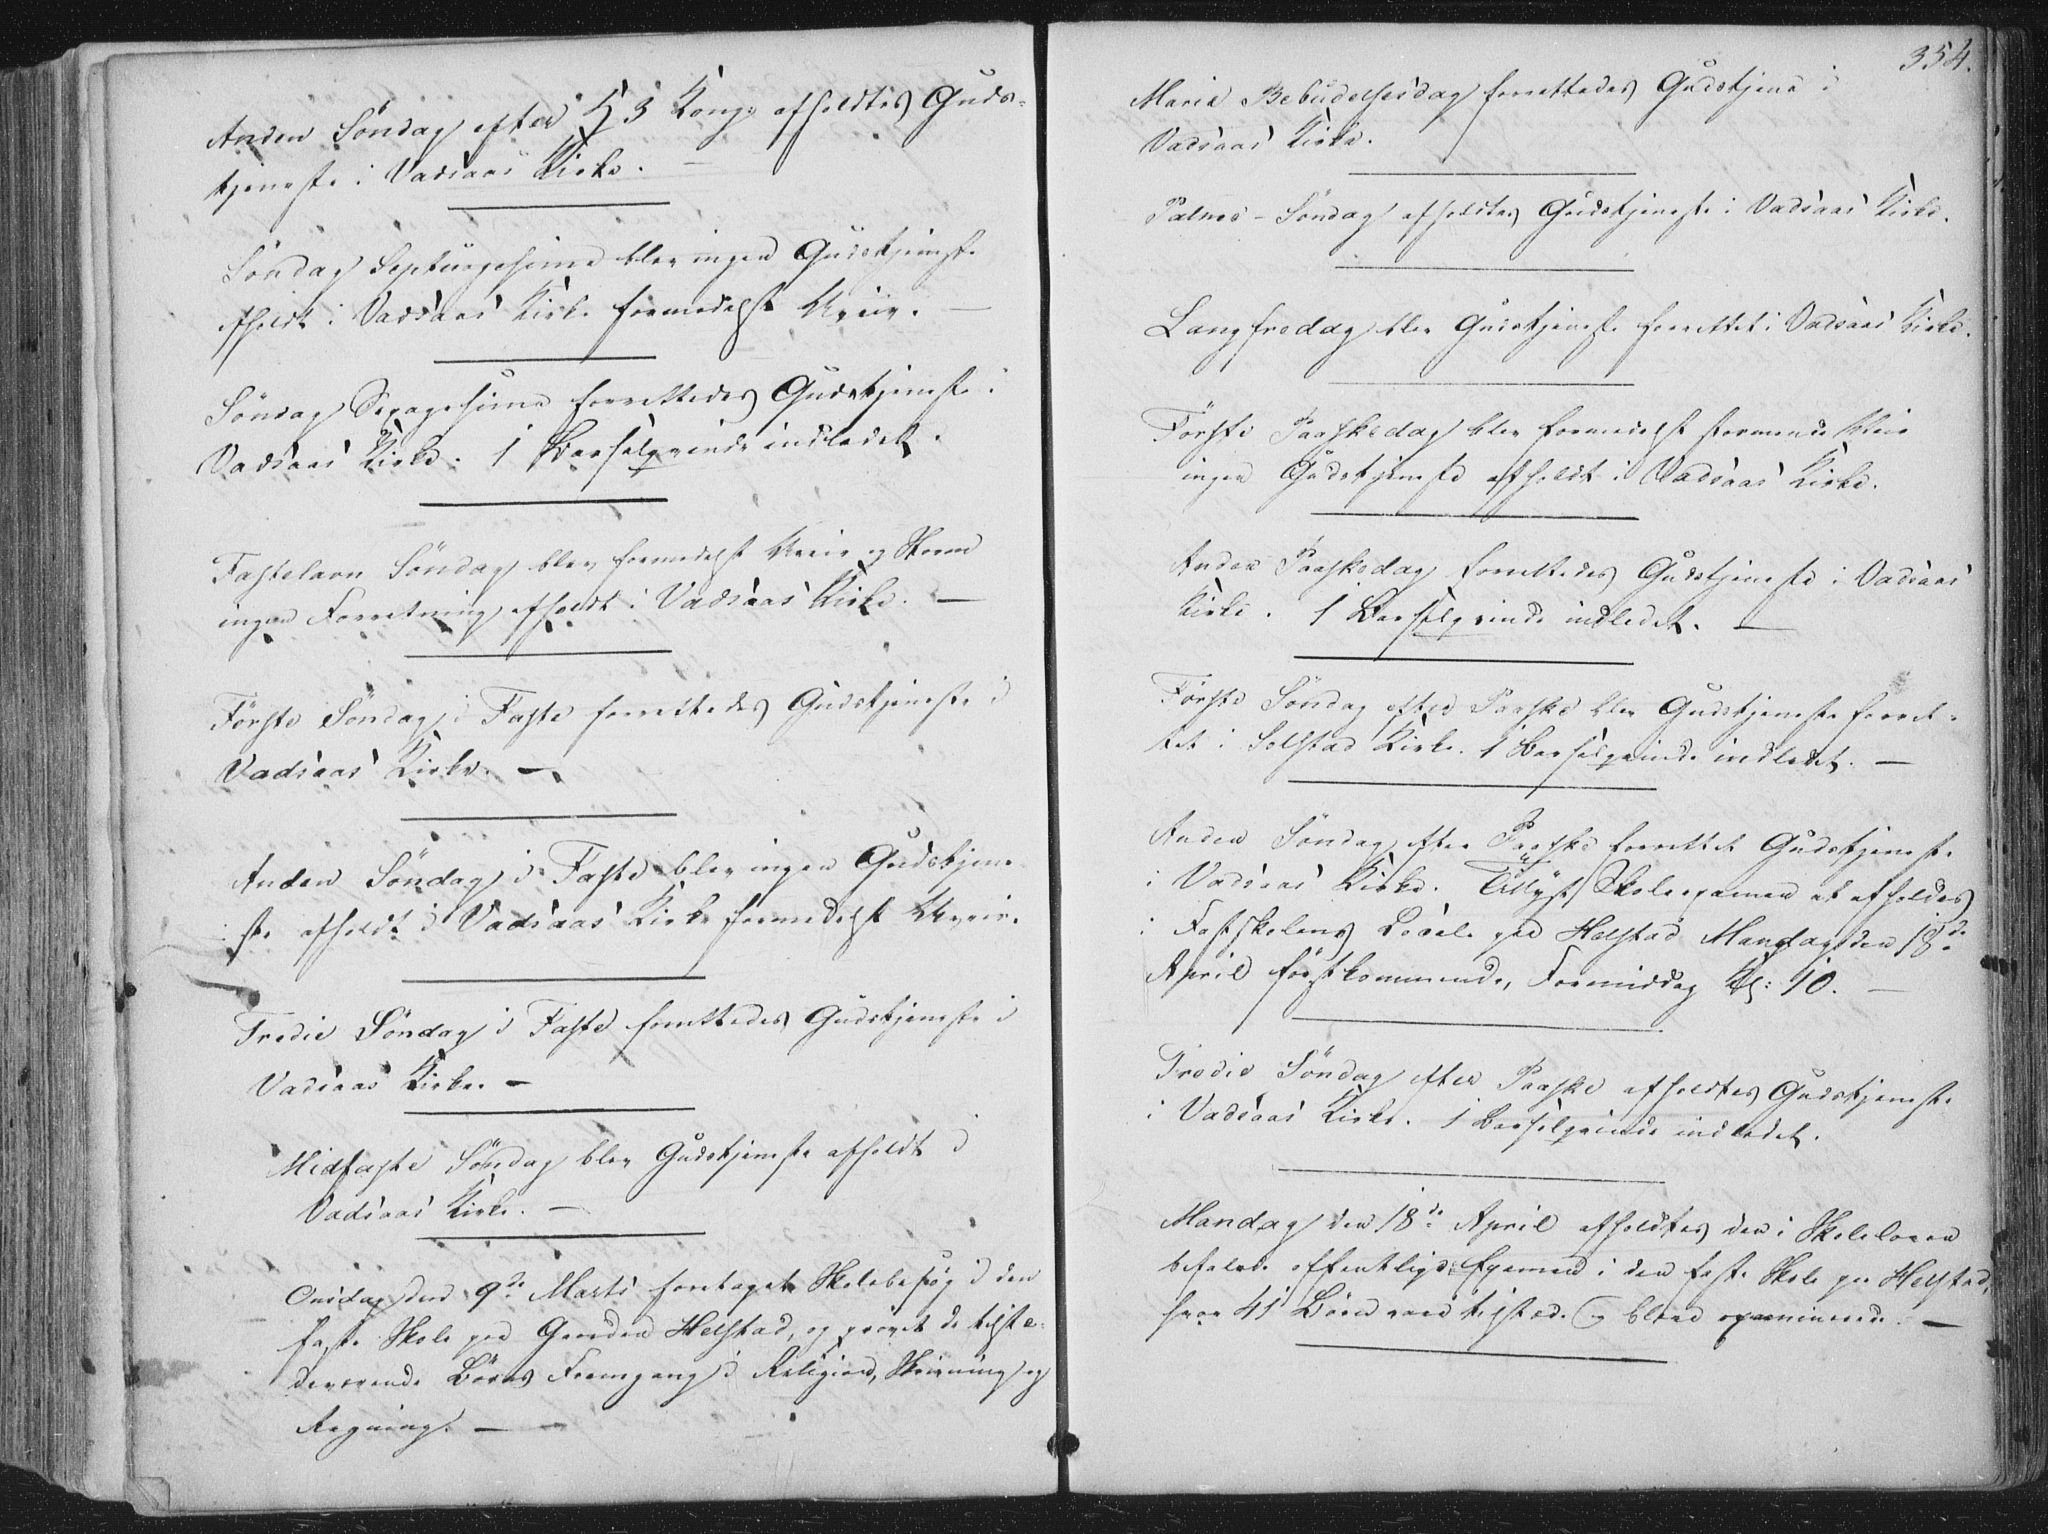 Anden Söndag efter H 3 Kong. afholdtes Guds-
tjeneste i Vadsaas Kirke. —
Söndag Septuagesima blev ingen Gudstjeneste
afholdt i Vadsaas Kirke formedelst Uveir. —
Söndag Sexagesima forrettedes Gudstjeneste i
Vadsaas Kirke. 1 Barselqvinde indledet.
Fastelavn Söndag blev formedelst Uveir og Storm
ingen Forretning afholdt i Vadsaas Kirke. —
Förste Söndag i Faste forrettedes Gudstjeneste i
Vadsaas Kirke. —
Anden Söndag i Faste blev ingen Gudstjene-
ste afholdt i Vadsaas Kirke formedelst Uveir.
Tredie Söndag i Faste forrettedes Gudstjeneste i
Vadsaas Kirke. —
Midfaste Söndag blev Gudstjeneste afholdt i
Vadsaas Kirke. —
Onsdag den 9de Marts foretaget Skolebesög i den
faste Skole paa Gaarden Helstad, og prövet de tilste-
deværende Börns Fremgang i Religion, Skrivning og
Regning. —
354.
Maria Bebudelsesdag forrettedes Gudstjene i
Vadsaas Kirke.
Palme-Söndag afholdtes Gudstjeneste i Vadsaas Kirke.
Langfredag blev Gudstjeneste forrettet i Vadsaas Kirke.
Förste Paaskedag blev formedelst stormende Veir
ingen Gudstjeneste afholdt i Vadsaas Kirke.
Anden Paaskedag forrettedes Gudstjeneste i Vadsaas
Kirke. 1 Barselqvinde indledet. —
Förste Söndag efter Paaske blev Gudstjeneste forret-
tet i Solstad Kirke. 1 Barselqvinde indledet. —
Anden Söndag efter Paaske forrettet Gudstjeneste
i Vadsaas Kirke. Tillyst Skoleexamen at afholdes
i Fastskolens Locale paa Helstad Mandag den 18de
April förstkommende, Formiddag Kl: 10. —
Tredie Söndag efter Paaske afholdtes Gudstjeneste
i Vadsaas Kirke. 1 Barselqvinde indledet.
Mandag den 18de April afholdtes den i Skoleloven
befalede offentlige Examen i den faste Skole paa Helstad,
hvor 41 Börn vare tilstede og bleve examinerede. —